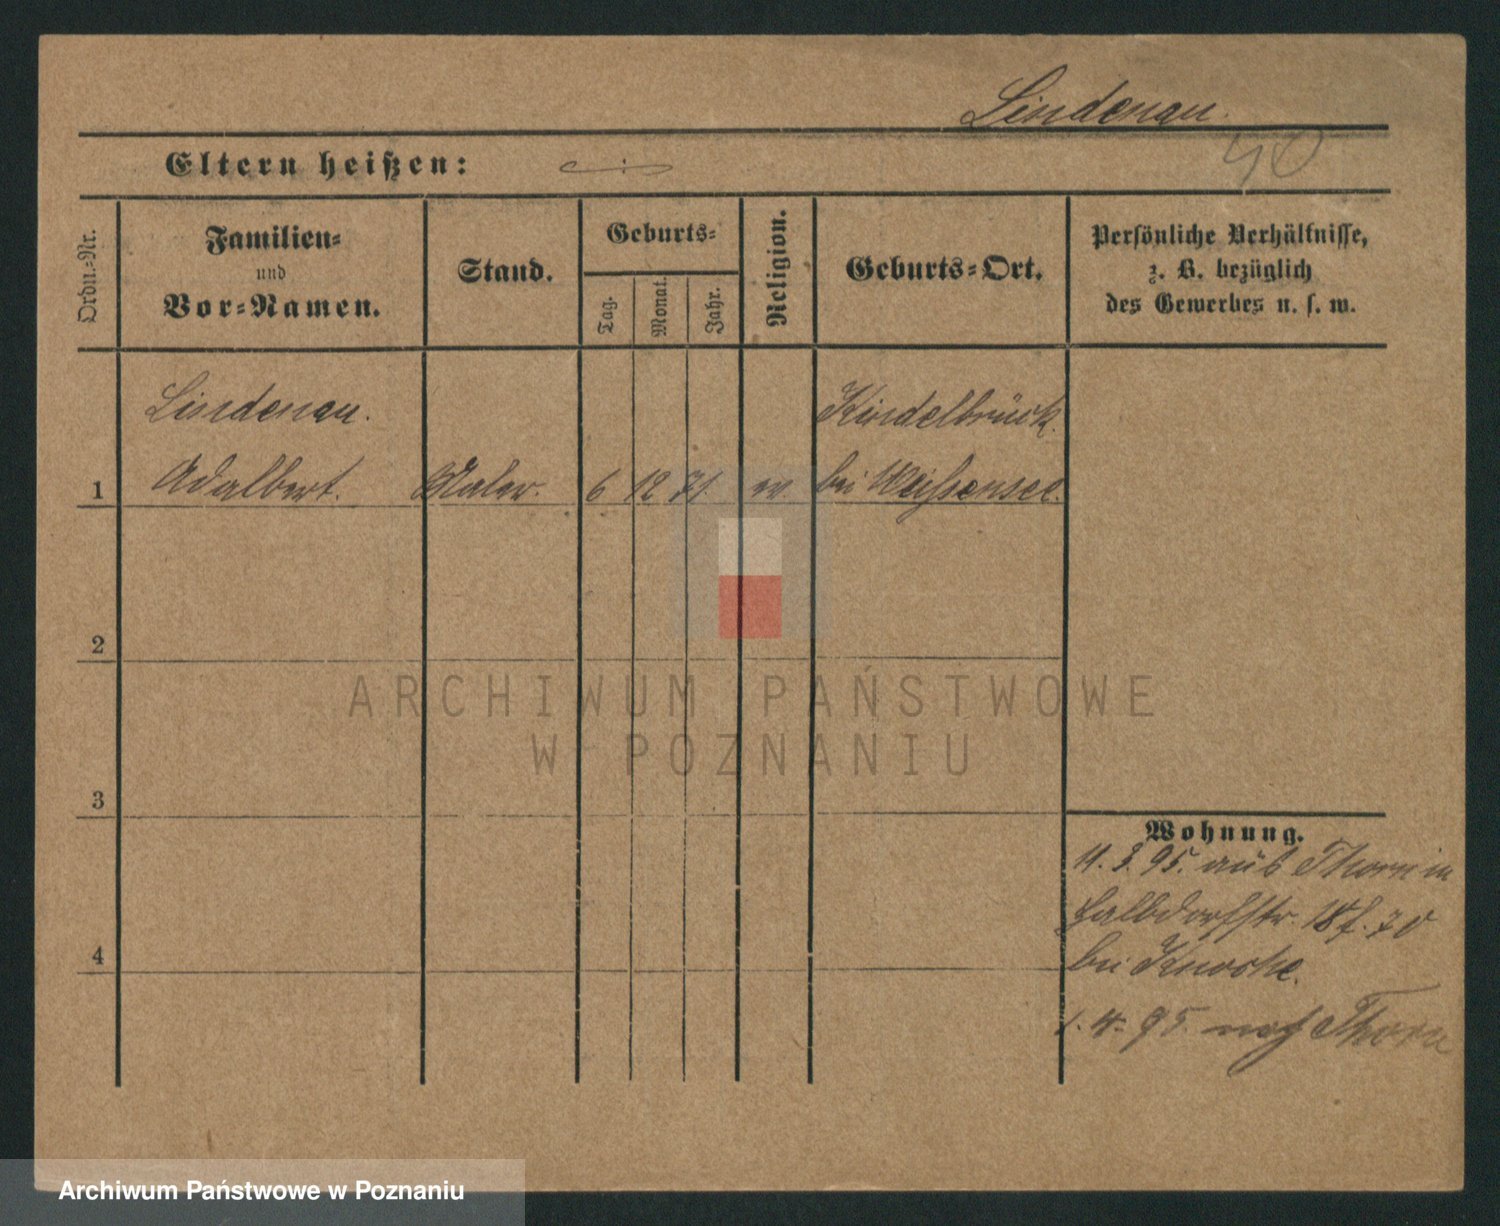 Lindenau.
40
Eltern heißen:
Ordn.-Nr.
Familien-
und
Vor-Namen.
Stand.
Geburts-
Tag.
Monat.
Jahr.
Religion.
Geburts-Ort.
Persönliche Verhältnisse,
z. B. bezüglich
des Gewerbes u. s. w.
Lindenau. Kindelbrück
1 Adalbert. Maler. 6 12 71. ev. bei Weißensee.
2
3
4
Wohnung.
11. 3. 95. aus Thorn in
Halbdorfstr. 18
bei
1. 4. 95. nach Thorn
ARCHIWUM PAŃSTWOWE
W POZNANIU
Archiwum Państwowe w Poznaniu